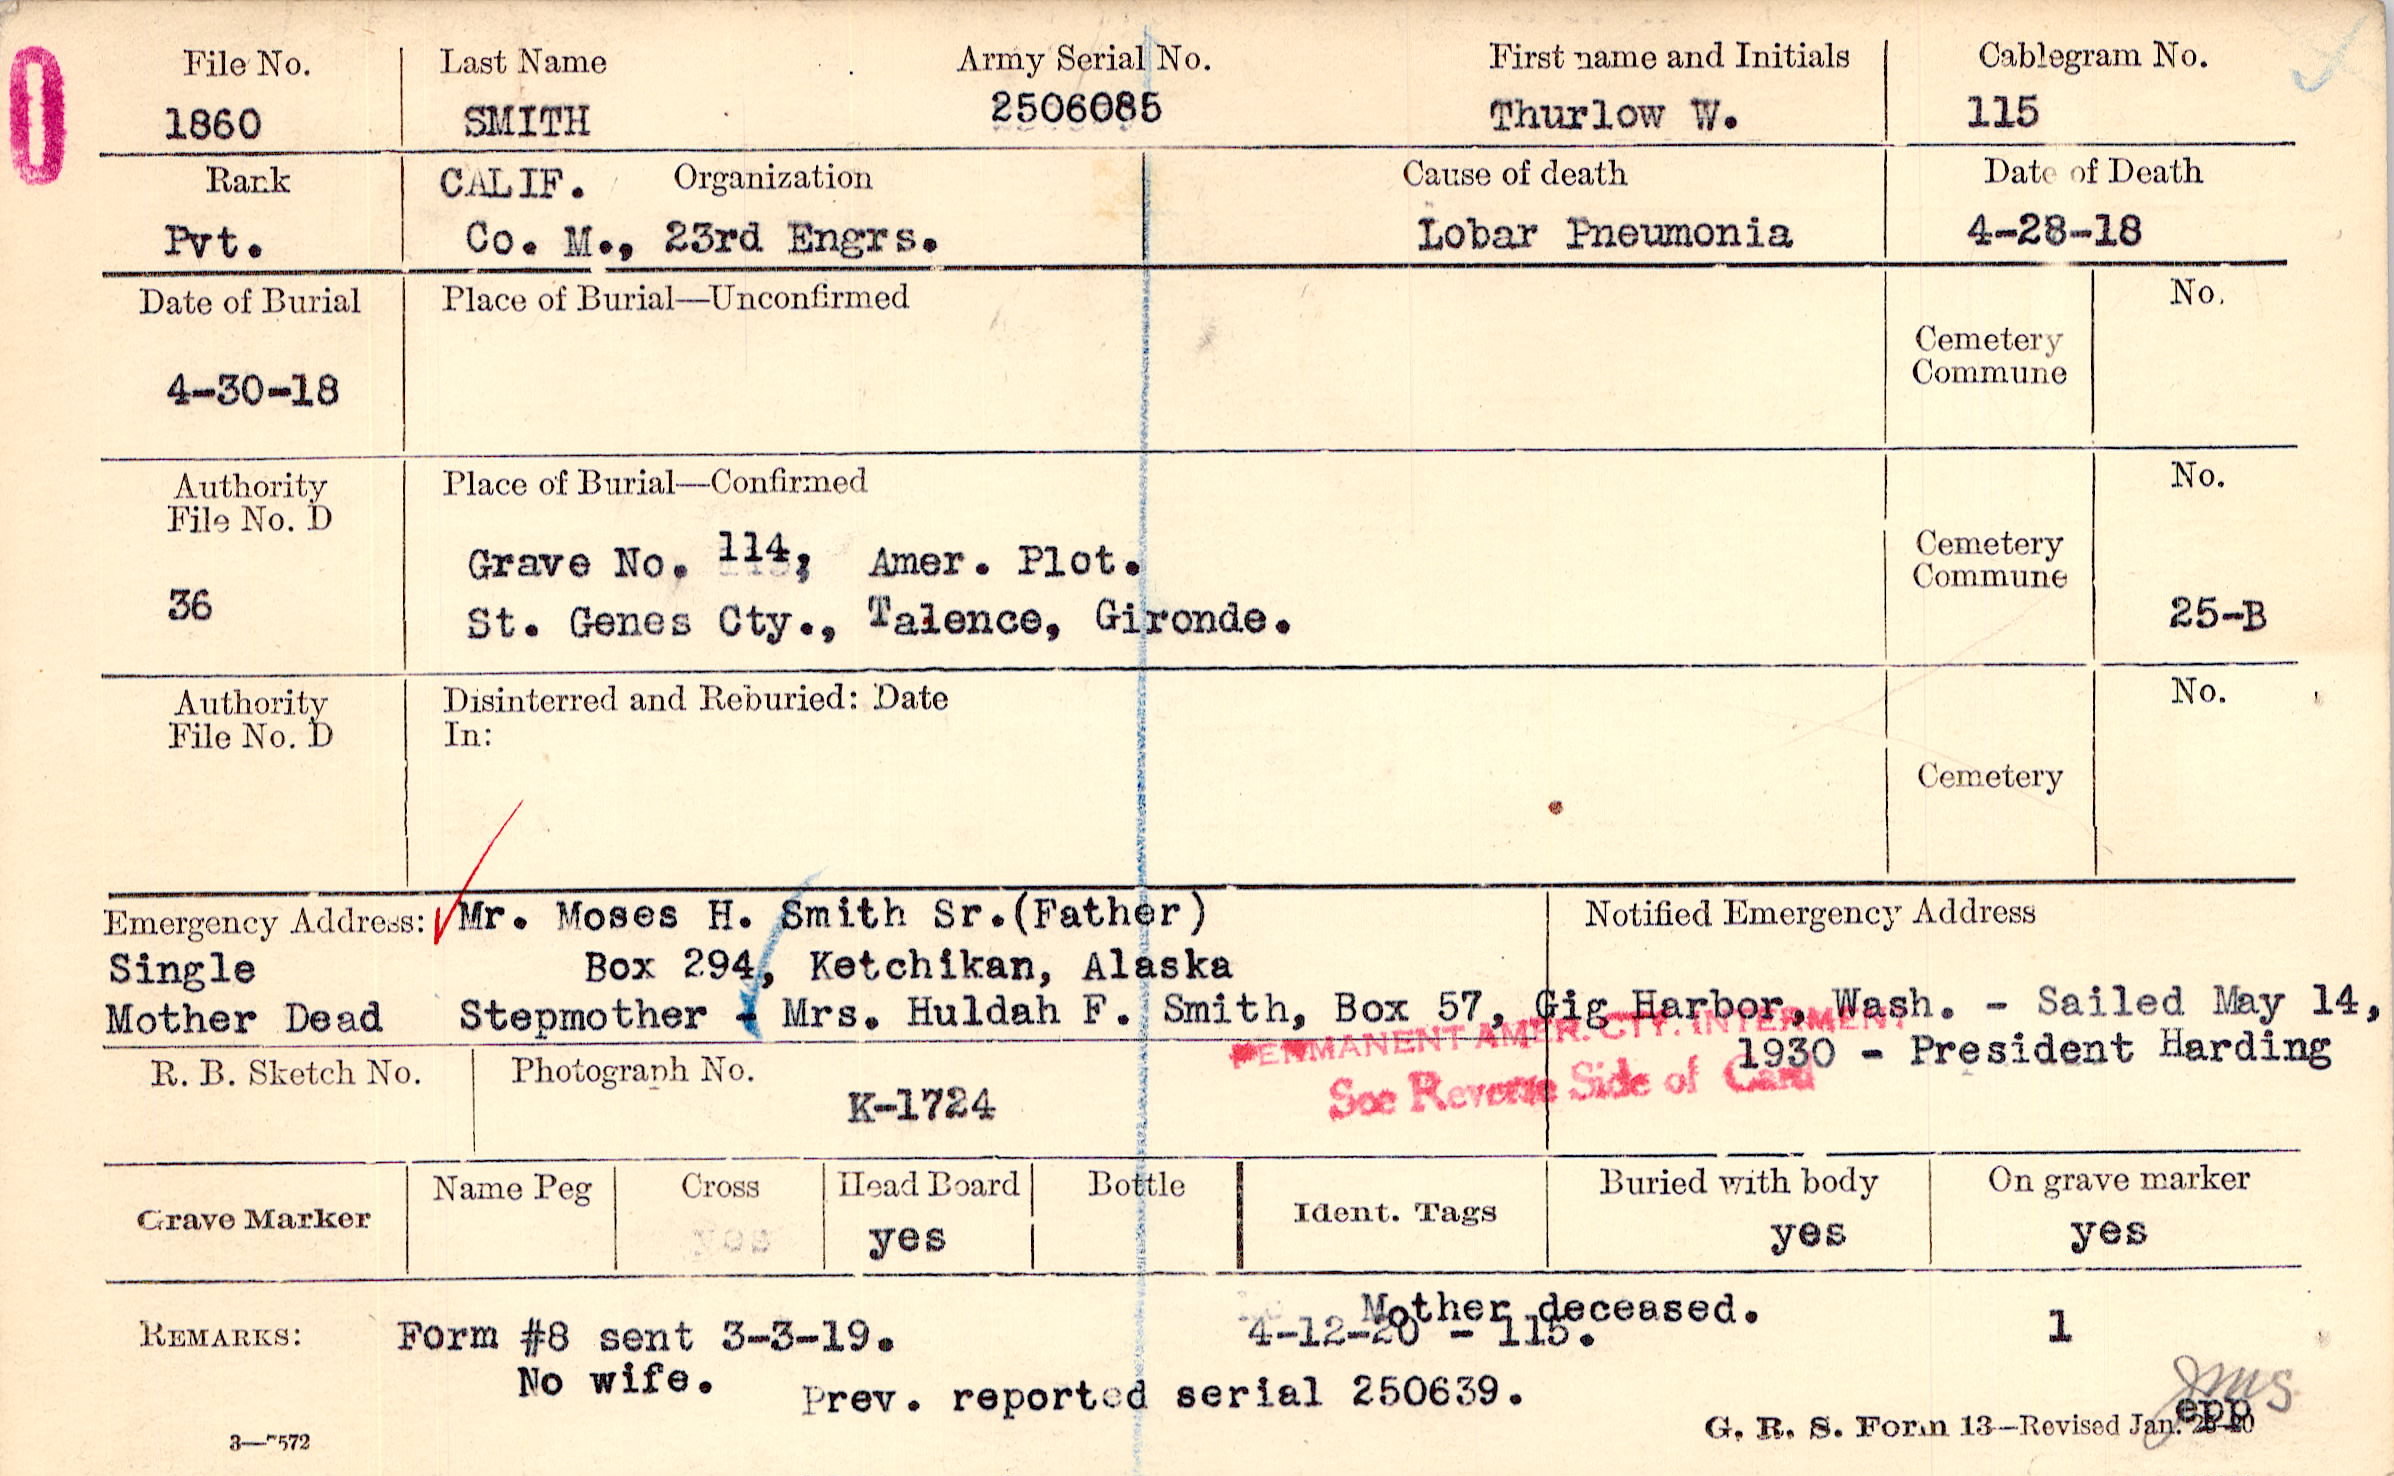 0
File No. Last Name Army Serial No. First name and Initials Cablegram No.
1860 SMITH 2506085 Thurlow W. 115
Rank CALIF. Organization Cause of death Date of Death
Pvt. Co. M., 23rd Engrs. Lobar Pneumonia 4-28-18
Date of Burial Place of Burial—Unconfirmed No.
Cemetery
Commune
4-30-18
Authority Place of Burial—Confirmed No.
File No. D
Grave No. 114, Amer. Plot. Cemetery
Commune
36 St. Genes Cty., Talence, Gironde. 25-B
Authority Disinterred and Reburied: Date No.
File No. D In:
Cemetery
Emergency Address: Mr. Moses H. Smith Sr.(Father) Notified Emergency Address
Single Box 294, Ketchikan, Alaska
Mother Dead Stepmother - Mrs. Huldah F. Smith, Box 57, Gig Harbor, Wash. - Sailed May 14,
1930 - President Harding
PERMANENT AMER. CTY. INTERMENT
See Reverse Side of Card
R. B. Sketch No. Photograph No.
K-1724
Grave Marker Name Peg Cross Head Board Bottle Ident. Tags Buried with body On grave marker
yes yes yes yes
Mother deceased.
REMARKS: Form #8 sent 3-3-19. 4-12-20 - 115. 1
No wife. Prev. reported serial 250639.
JMS
epp
3—7572 G. R. S. Form 13—Revised Jan.